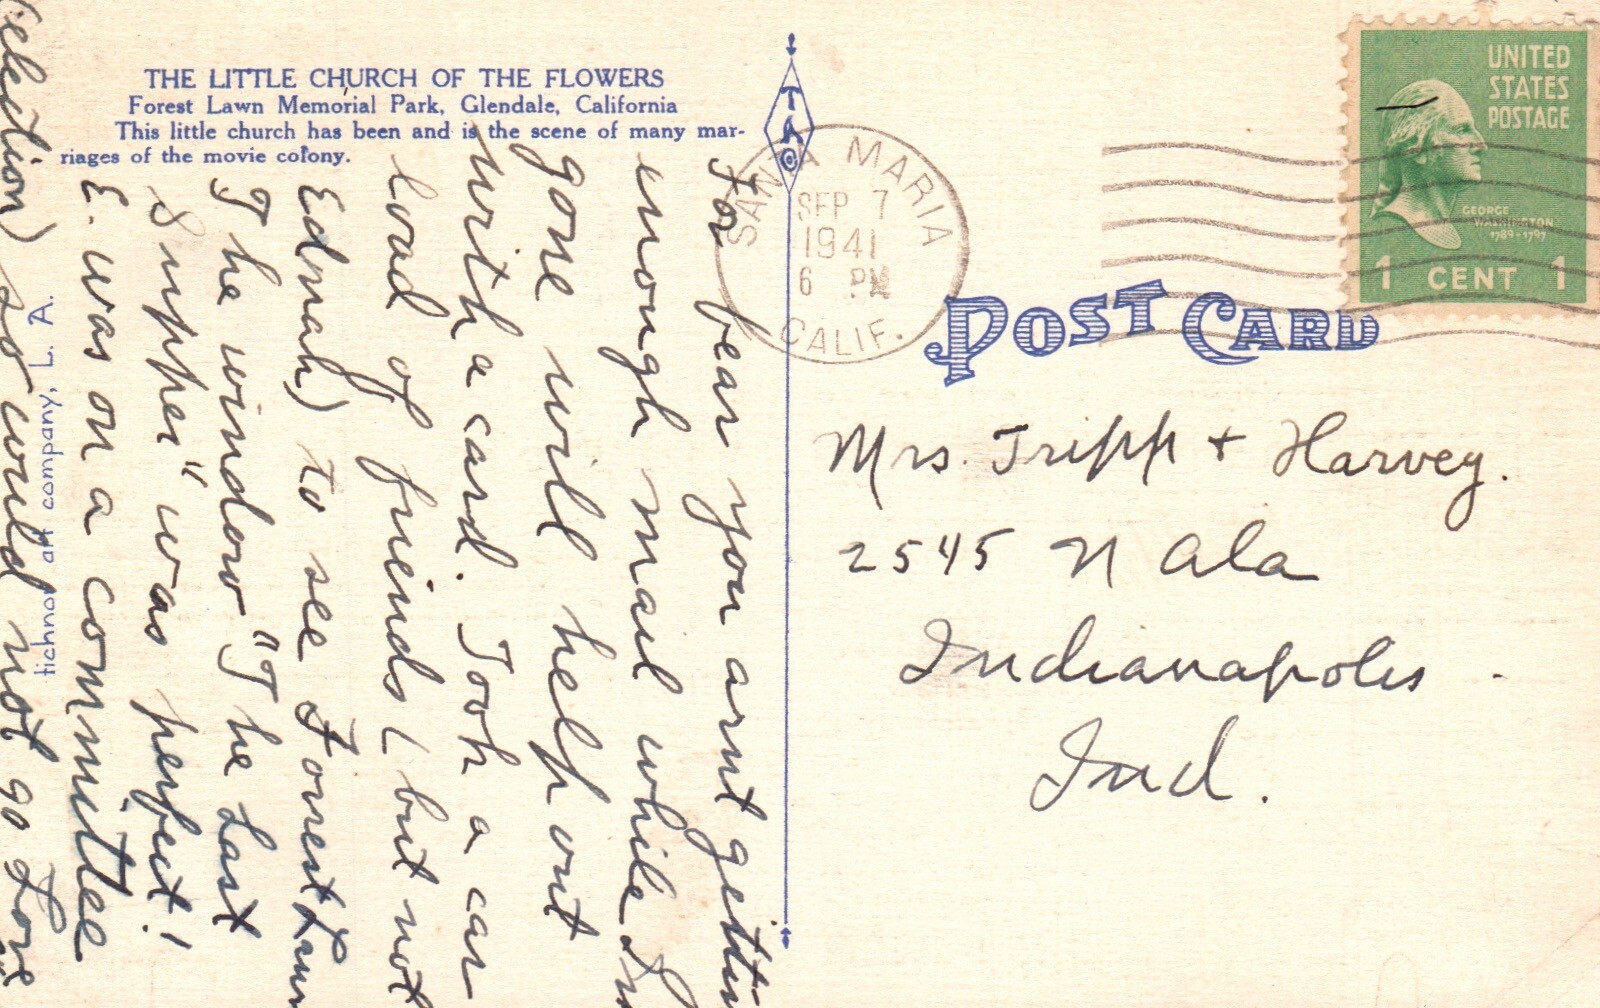 THE LITTLE CHURCH OF THE FLOWERS
Forest Lawn Memorial Park, Glendale, California
This little church has been and is the scene of many mar-
riages of the movie colony.
TAC
SANTA MARIA
SEP 7
1941
6 PM
CALIF.
UNITED
STATES
POSTAGE
GEORGE
WASHINGTON
1789-1797
1 CENT 1
POST CARD
Mrs. Tripp + Harvey.
2545 N Ala
Indianapolis
Ind.
For fear you arnt gettin
enough mail while I'm
gone will help out
with a card. Took a car
load of friends (but not
Ednah) to see Forest Lawn
The window "The Last
Supper" was perfect!
E. was on a committee
(election) so could not go Love
tichnor art company, L. A.